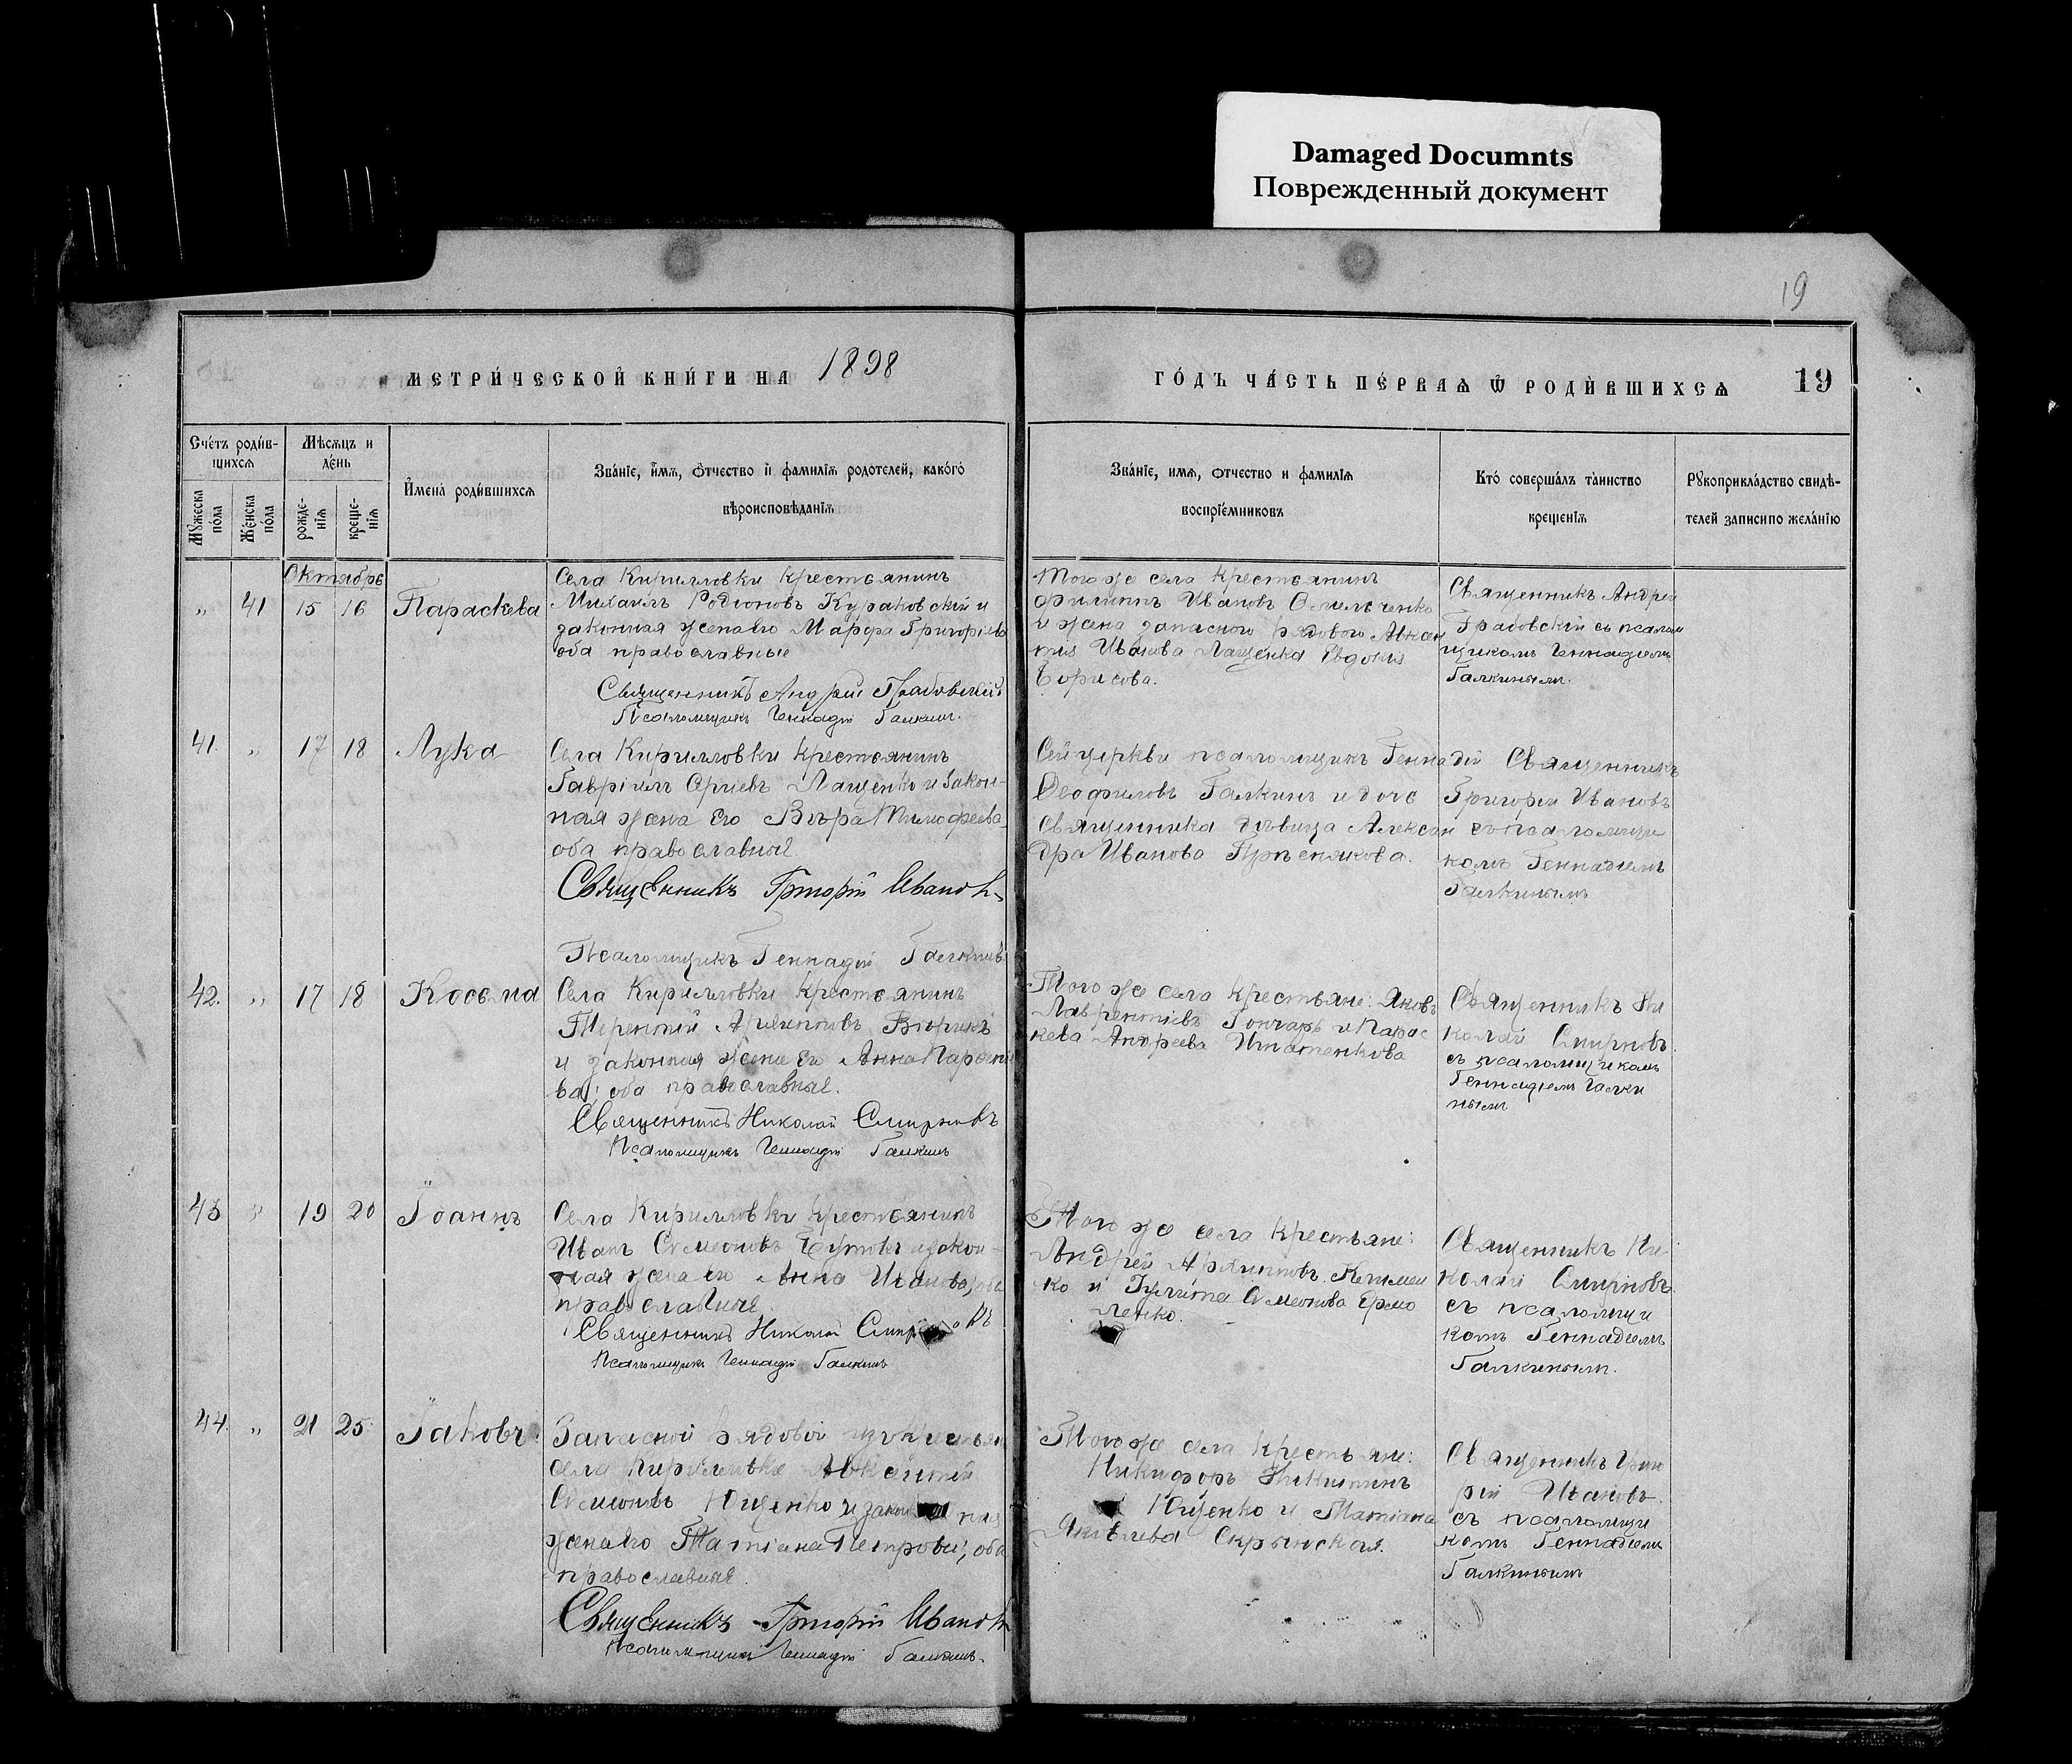 Damaged Documnts
Поврежденный документ
19
МЕТРИ́ЧЕСКОЙ КНИ́ГИ НА 1898
ГО́ДЪ ЧА́СТЬ ПЕ́РВАѦ Ѿ РОДИ́ВШИХСѦ 19
Сче́тъ роди́в-
шихсѧ
Мѣсѧцъ и
де́нь
И҆мена̀ роди́вшихсѧ
Зва́нїе, и҆́мѧ, ѻ҆́тчество и҆ фамилїѧ родителей, како́гѡ
вѣроисповѣданїѧ
Мꙋжеска
по́ла
Же́нска
по́ла
рожде-
нїѧ
креще-
нїѧ
Зва́нїе, имѧ, ѻтчество и фамилїѧ
воспрїе́мниковъ
Кто́ соверша́лъ та́инство
креще́нїѧ
Рꙋкоприкла́дство свидѣ-
телей записи по жела́нїю
Октябрь
„ 41 15 16 Параскева
Села Кирилловки крестьянинъ
Михаилъ Родіоновъ Кураковскій и
законная жена его Марѳа Григорьева
оба православные
Священникъ Андрей Грабовскій
Псаломщикъ Геннадій Галкинъ.
Того же села крестьянинъ
Филиппъ Ивановъ Омельченко
и жена запаснаго рядового
Иванова Лащенка Евдокія
Борисова.
Священникъ Андрей
Грабовскій съ псалом
щикомъ Геннадіемъ
Галкинымъ.
41. „ 17 18 Лука
Села Кирилловки крестьянинъ
Гавріилъ Лащенко и закон-
ная жена его Вѣра Тимофеева
оба православные
Священникъ Григорій Ивановъ
Псаломщикъ Геннадій Галкинъ
Сей церкви псаломщикъ Геннадій
Ѳеофиловъ Галкинъ и дочь
священника дѣвица Алексан
дра Иванова Прѣснякова.
Священникъ
Григорій Ивановъ
съ псаломщи
комъ Геннадіемъ
Галкинымъ
42. „ 17 18 Косьма
Села Кирилловки крестьянинъ
Терентій Архиповъ
и законная жена его Анна Парѳень
ва; оба православные.
Священникъ Николай Смирновъ
Псаломщикъ Геннадій Галкинъ
Того же села крестьяне: Яковъ
Лаврентіевъ Гончаръ и Парас
кева Андреева Игнатенкова
Священникъ Ни
колай Смирновъ
съ псаломщикомъ
Геннадіемъ Галки
нымъ
43 „ 19 20 Іоаннъ
Села Кирилловки крестьянинъ
Иванъ Симеоновъ и закон-
ная жена его Анна Иванова, оба
православные.
Священникъ Николай Смирновъ
Псаломщикъ Геннадій Галкинъ
Того же села крестьяне:
Андрей Архиповъ
ко и Симеонова Ермо
ленко.
Священникъ Ни
колай Смирновъ
съ псаломщи
комъ Геннадіемъ
Галкинымъ.
44. „ 21 25 Іаковъ
Запасной рядовой изъ крестьян
села Кирилловки Авксентій
Симеоновъ Ющенко и закон ная
жена его Татіана Петрова, оба
православные.
Священникъ Григорій Ивановъ
Псаломщикъ Геннадій Галкинъ.
Того же села крестьяне:
Никифоръ Никитинъ
Ющенко и Татіана
Яковлева Скрынская.
Священникъ Григо
рій Ивановъ
съ псаломщи
комъ Геннадіемъ
Галкинымъ